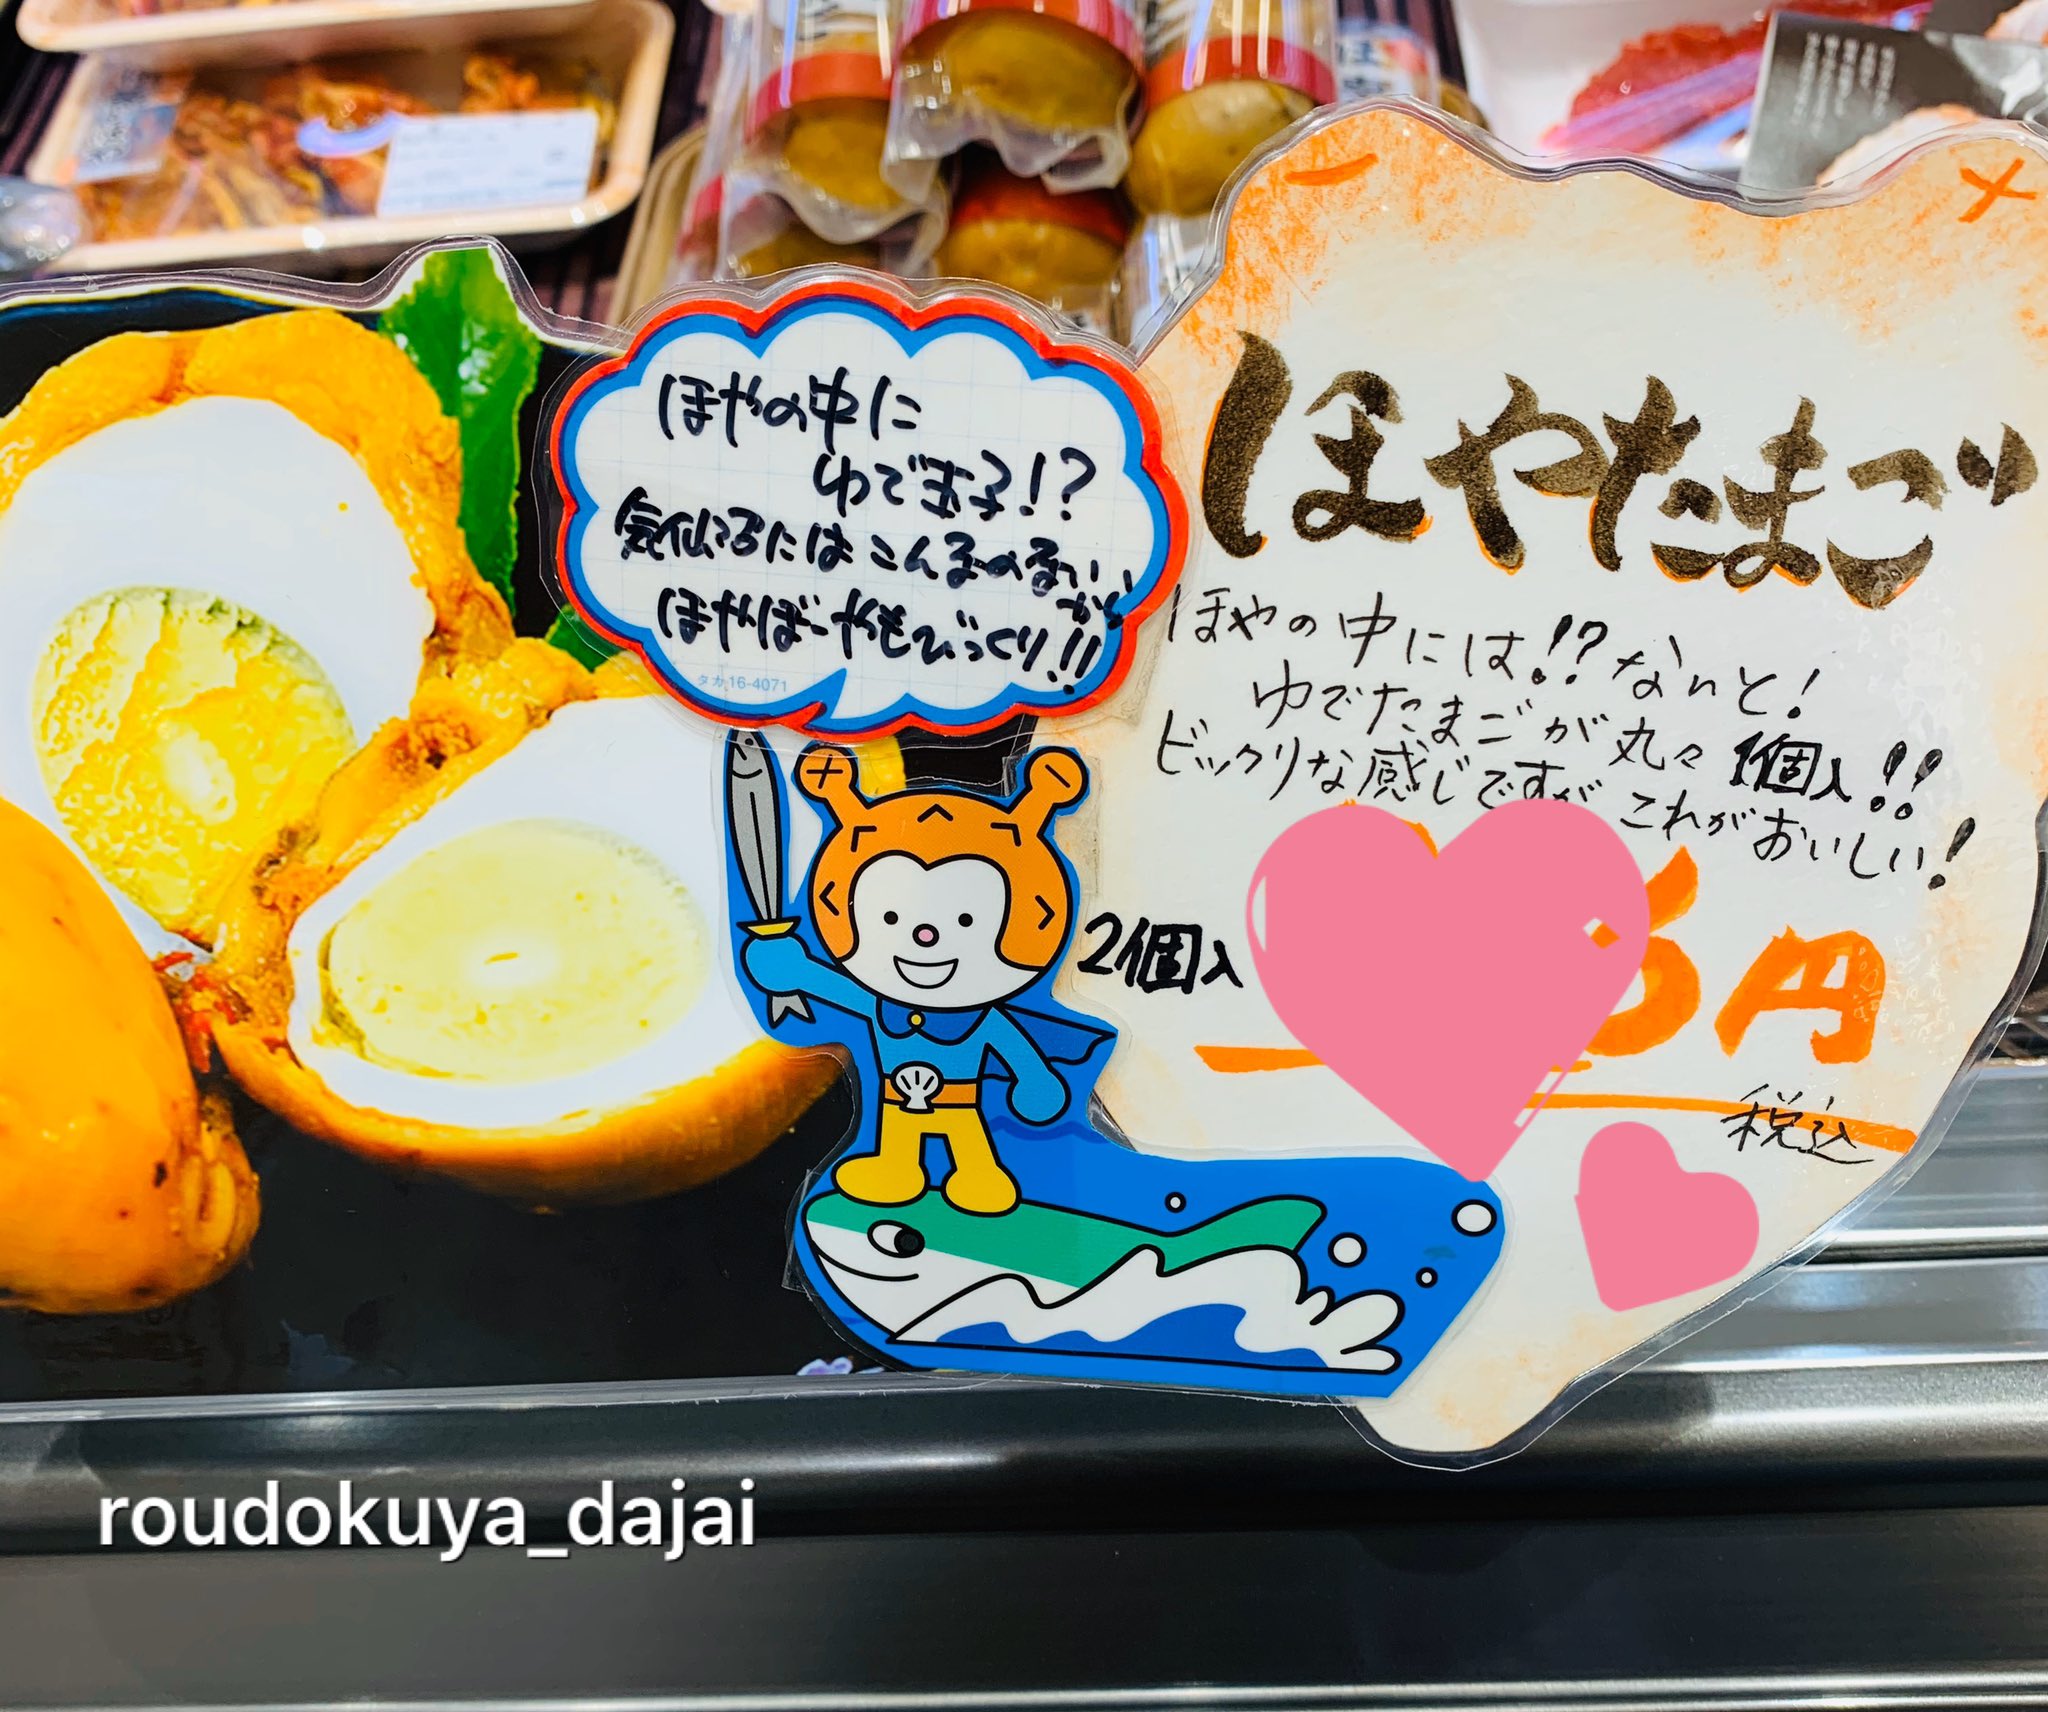 ほやの中に
ゆで玉子!?
気仙沼にはこんなのあるい
ほやぼーやもびっくり!!
タカ 16-4071
ほやたまご
ほやの中には!?なんと!
ゆでたまごが丸々1個入!!
ビックリな感じですがこれがおいしい!
2個入
円
税込
roudokuya_dajai